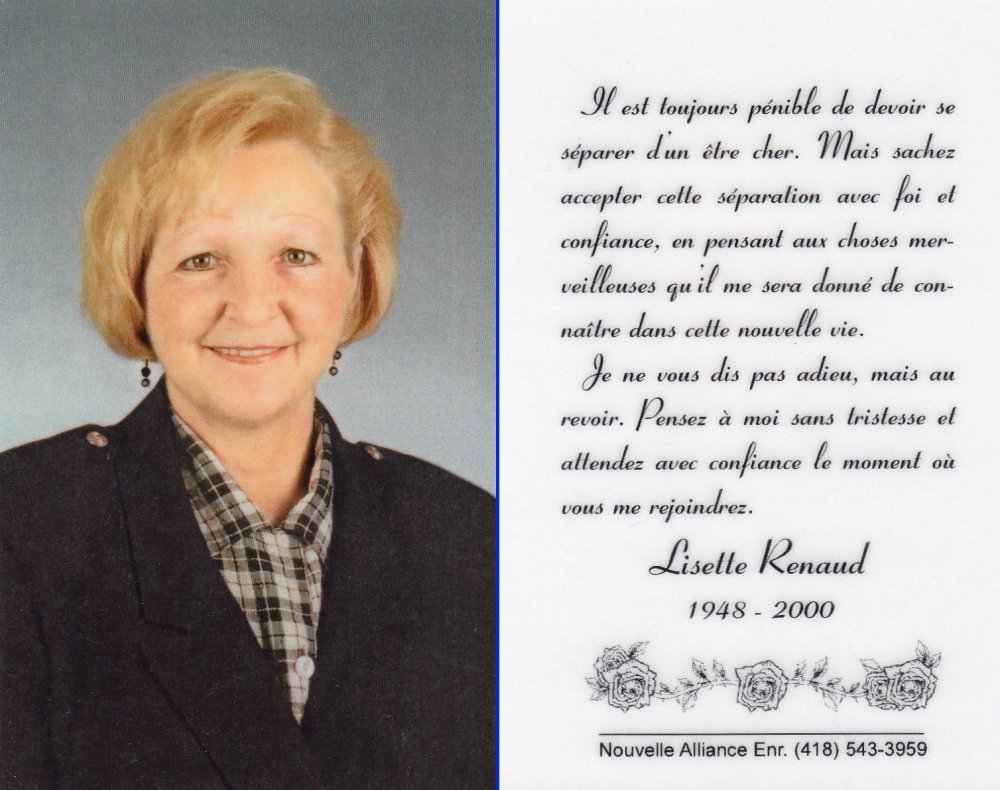 Il est toujours pénible de devoir se
séparer d'un être cher. Mais sachez
accepter cette séparation avec foi et
confiance, en pensant aux choses mer-
veilleuses qu'il me sera donné de con-
naître dans cette nouvelle vie.
Je ne vous dis pas adieu, mais au
revoir. Pensez à moi sans tristesse et
attendez avec confiance le moment où
vous me rejoindrez.
Lisette Renaud
1948 - 2000
Nouvelle Alliance Enr. (418) 543-3959